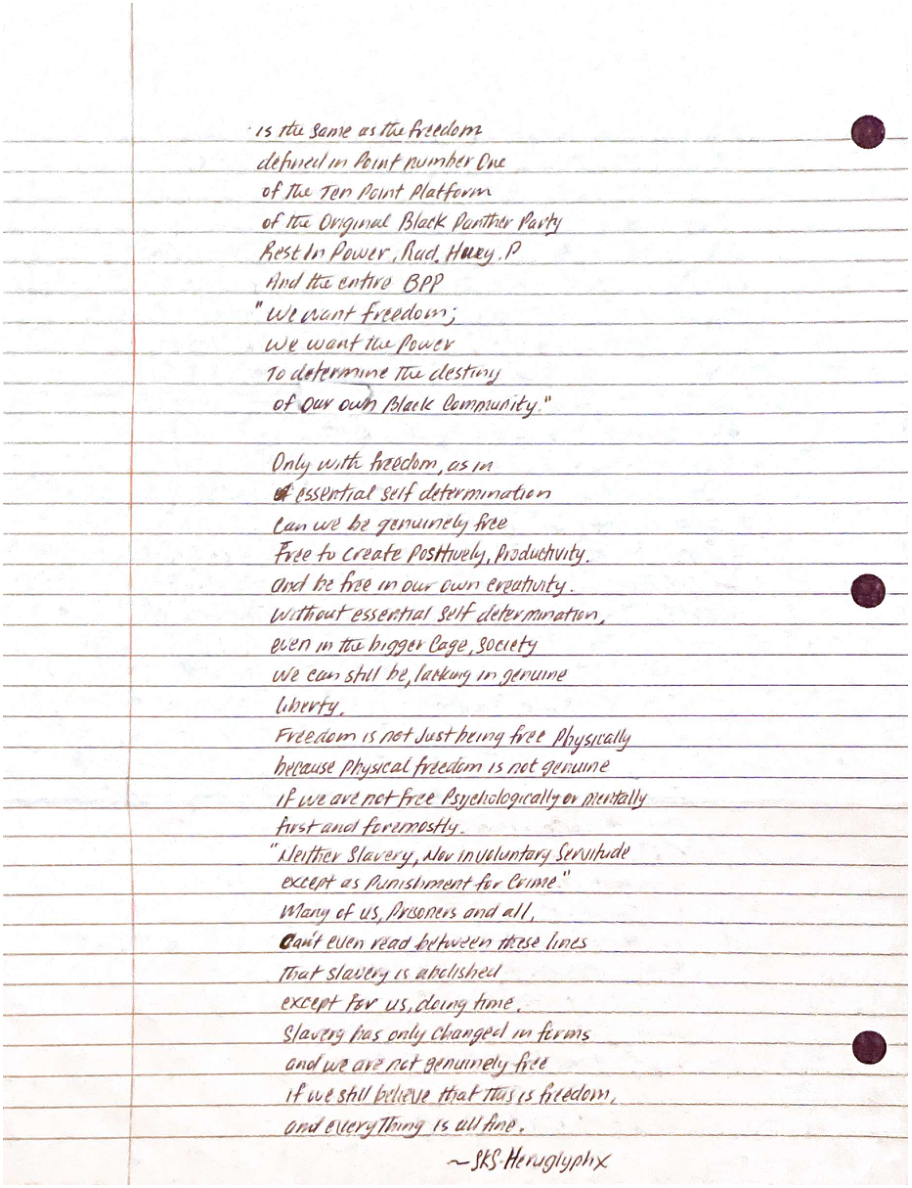 is the same as the freedom
defined in Point number One
of the Ten Point Platform
of the Original Black Panther Party
Rest In Power, Rad. Huey. P
And the entire BPP
"We want freedom;
we want the Power
To determine the destiny
of our own Black Community."
Only with freedom, as in
essential self determination
Can we be genuinely free
Free to create Positively, Productivity.
and be free in our own creativity.
Without essential self determination,
even in the bigger Cage, Society
we can still be, lacking in genuine
liberty.
Freedom is not Just being free Physically
because Physical freedom is not genuine
if we are not free Psychologically or mentally
first and foremostly.
"Neither Slavery, Nor involuntary Servitude
except as Punishment for Crime."
Many of us, Prisoners and all,
Can't even read between these lines
That slavery is abolished
except for us, doing time.
Slavery has only changed in forms
and we are not genuinely free
if we still believe that this is freedom,
and everything is all fine.
~SKS-Heruglyphx